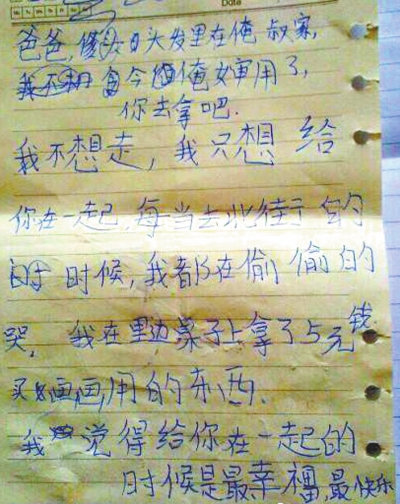 Date
爸爸，日头发里在俺叔家，
今俺婶用了，
你去拿吧.
我不想走，我只想给
你在一起.每当去北街的
时候，我都在偷偷的
哭，我在里边桌子上拿了5元钱
买画画用的东西.
我觉得给你在一起的
时候是最幸福，最快乐